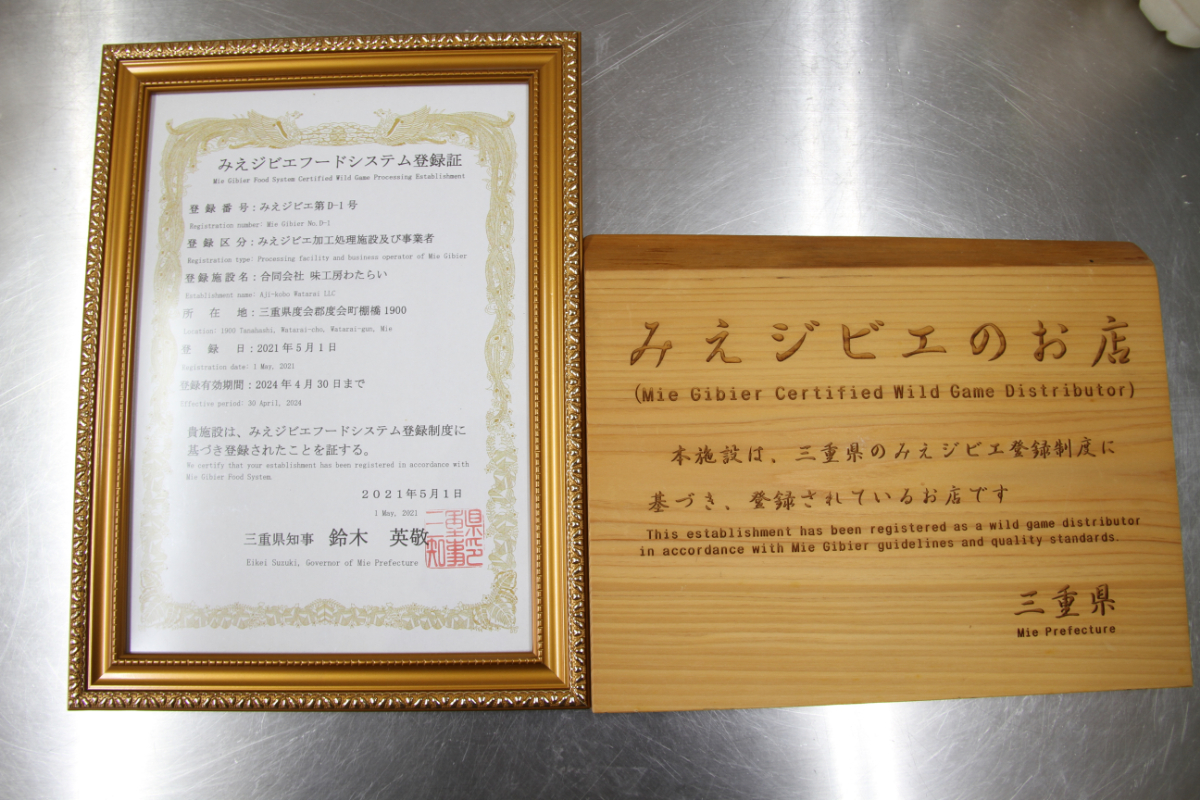 みえジビエフードシステム登録証
Mie Gibier Food System Certified Wild Game Processing Establishment
登録番号：みえジビエ第D-1号
Registration number: Mie Gibier No.D-1
登録区分：みえジビエ加工処理施設及び事業者
Registration type: Processing facility and business operator of Mie Gibier
登録施設名：合同会社 味工房わたらい
Establishment name: Aji-kobo Watarai LLC
所在地：三重県度会郡度会町棚橋1900
Location: 1900 Tanahashi, Watarai-cho, Watarai-gun, Mie
登録日：2021年5月1日
Registration date: 1 May, 2021
登録有効期間：2024年4月30日まで
Effective period: 30 April, 2024
貴施設は、みえジビエフードシステム登録制度に
基づき登録されたことを証する。
We certify that your establishment has been registered in accordance with
Mie Gibier Food System.
2021年5月1日
1 May, 2021
三重県知事 鈴木 英敬
三重県知事印
Eikei Suzuki, Governor of Mie Prefecture
みえジビエのお店
(Mie Gibier Certified Wild Game Distributor)
本施設は、三重県のみえジビエ登録制度に
基づき、登録されているお店です
This establishment has been registered as a wild game distributor
in accordance with Mie Gibier guidelines and quality standards.
三重県
Mie Prefecture